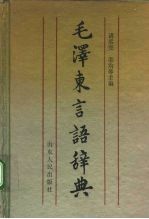 毛澤東言語辞典
山东人民出版社